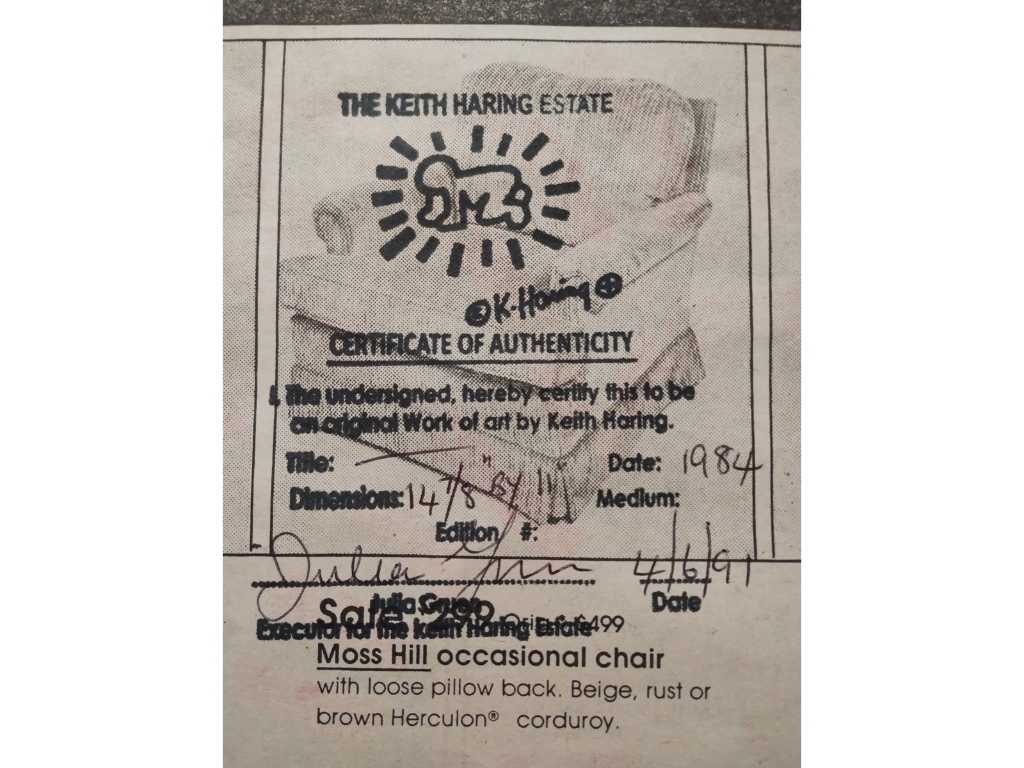 THE KEITH HARING ESTATE
© K-Haring ⊕
CERTIFICATE OF AUTHENTICITY
I, The undersigned, hereby certify this to be
an original Work of art by Keith Haring.
Title: — Date: 1984
Dimensions: 14 7/8" BY 11" Medium:
Edition #:
Julia Gruen 4/6/91
Julia Gruen Date
Sale 299 Orig. $499
Executor for the Keith Haring Estate
Moss Hill occasional chair
with loose pillow back. Beige, rust or
brown Herculon® corduroy.